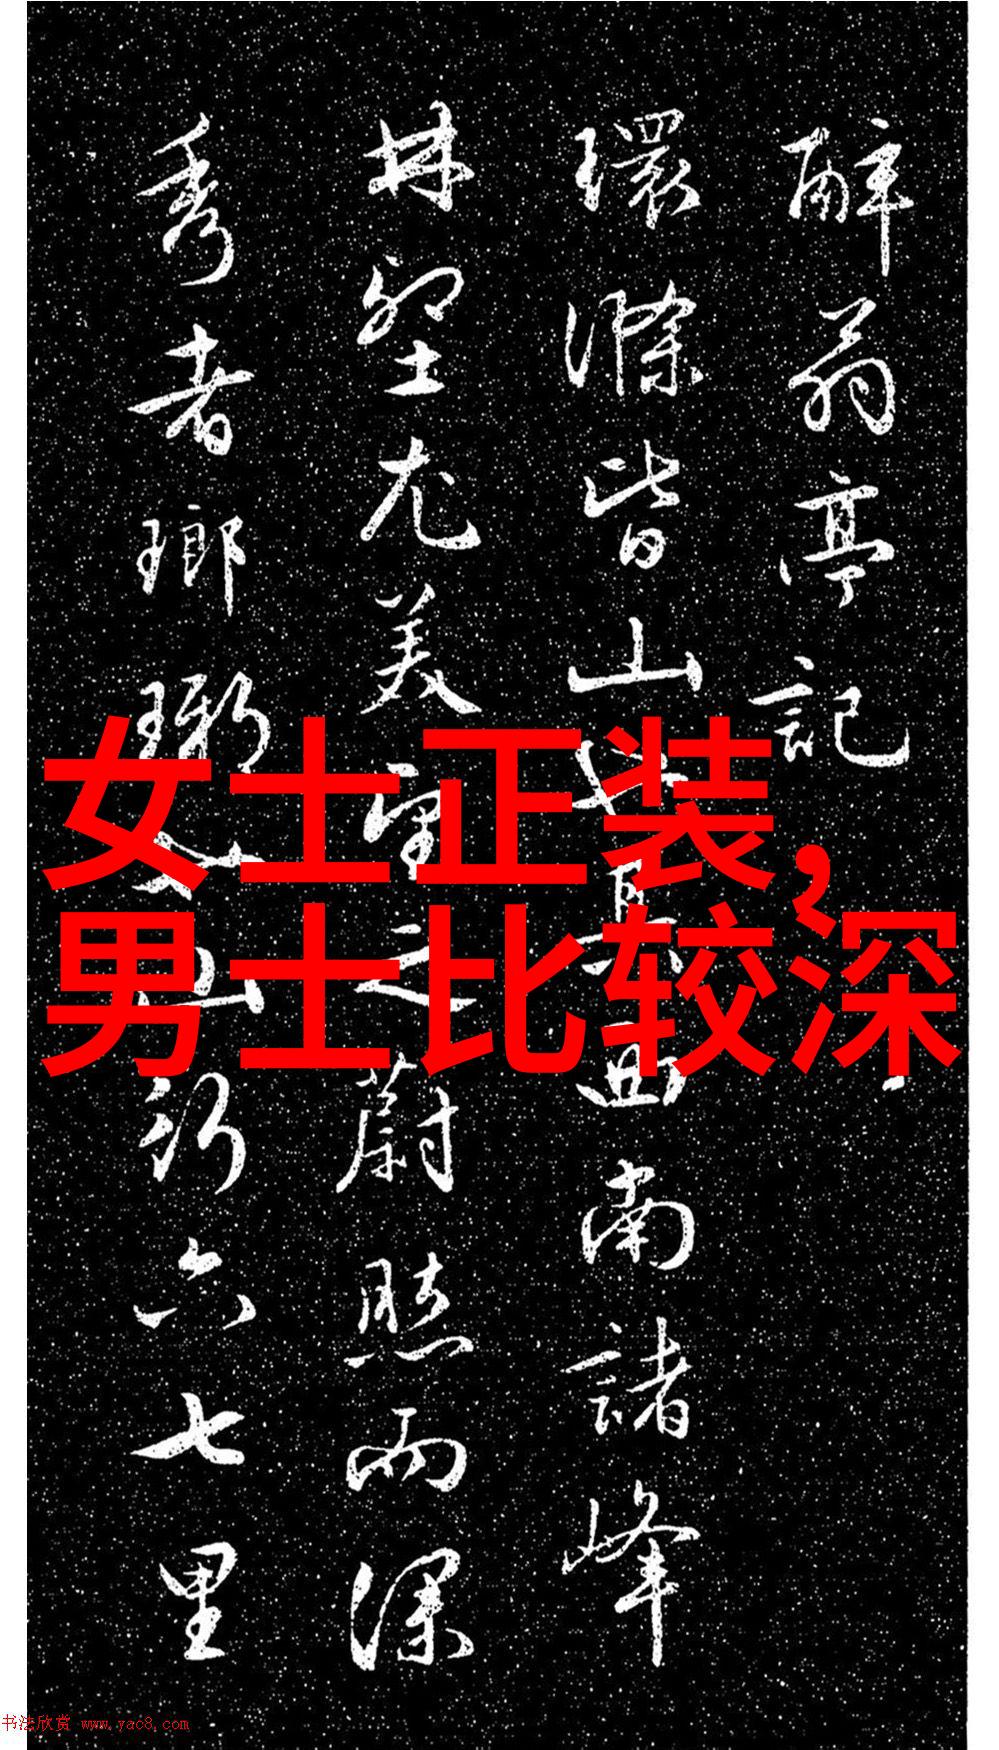 醉翁亭記
環滁皆山也其西南諸峰
林壑尤美望之蔚然而深
秀者瑯琊也山行六七里
女士正装,
男士比较深
书法欣赏 www.yac8.com